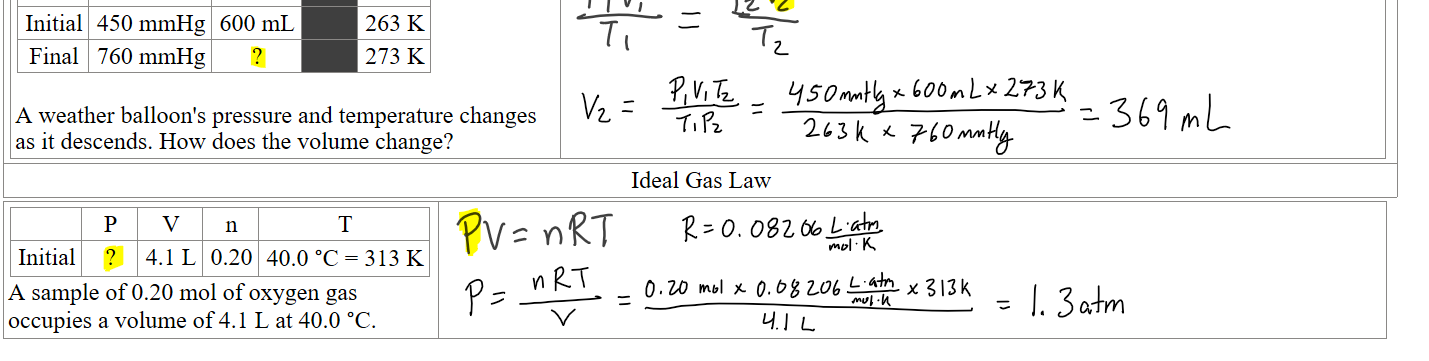 Initial 450 mmHg 600 mL 263 K
Final 760 mmHg ? 273 K
T₁ = T₂
A weather balloon's pressure and temperature changes
as it descends. How does the volume change?
V₂ = P₁V₁T₂ / T₁P₂ = 450mmHg × 600mL × 273K / 263K × 760mmHg = 369 mL
Ideal Gas Law
P V n T
Initial ? 4.1 L 0.20 40.0 °C = 313 K
A sample of 0.20 mol of oxygen gas
occupies a volume of 4.1 L at 40.0 °C.
PV = nRT R = 0.08206 L·atm / mol·K
P = nRT / V = 0.20 mol × 0.08206 L·atm / mol·K × 313K / 4.1 L = 1.3 atm